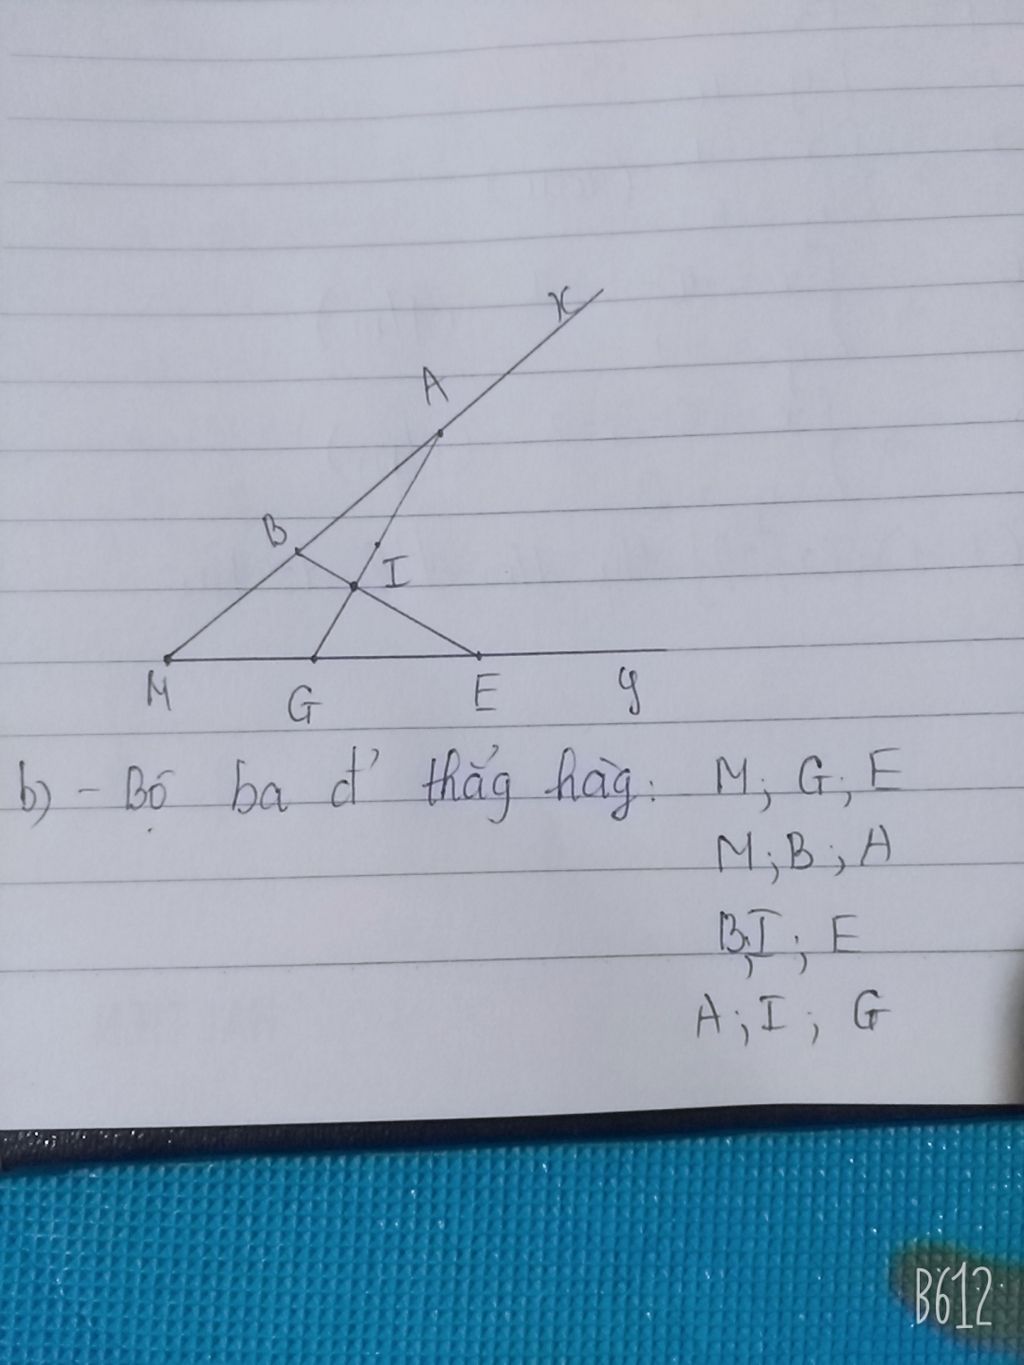 x
A
B
I
M G E y
b) - Bộ ba đ' thẳg hàg: M; G; E
M; B; A
B; I; E
A; I; G
B612